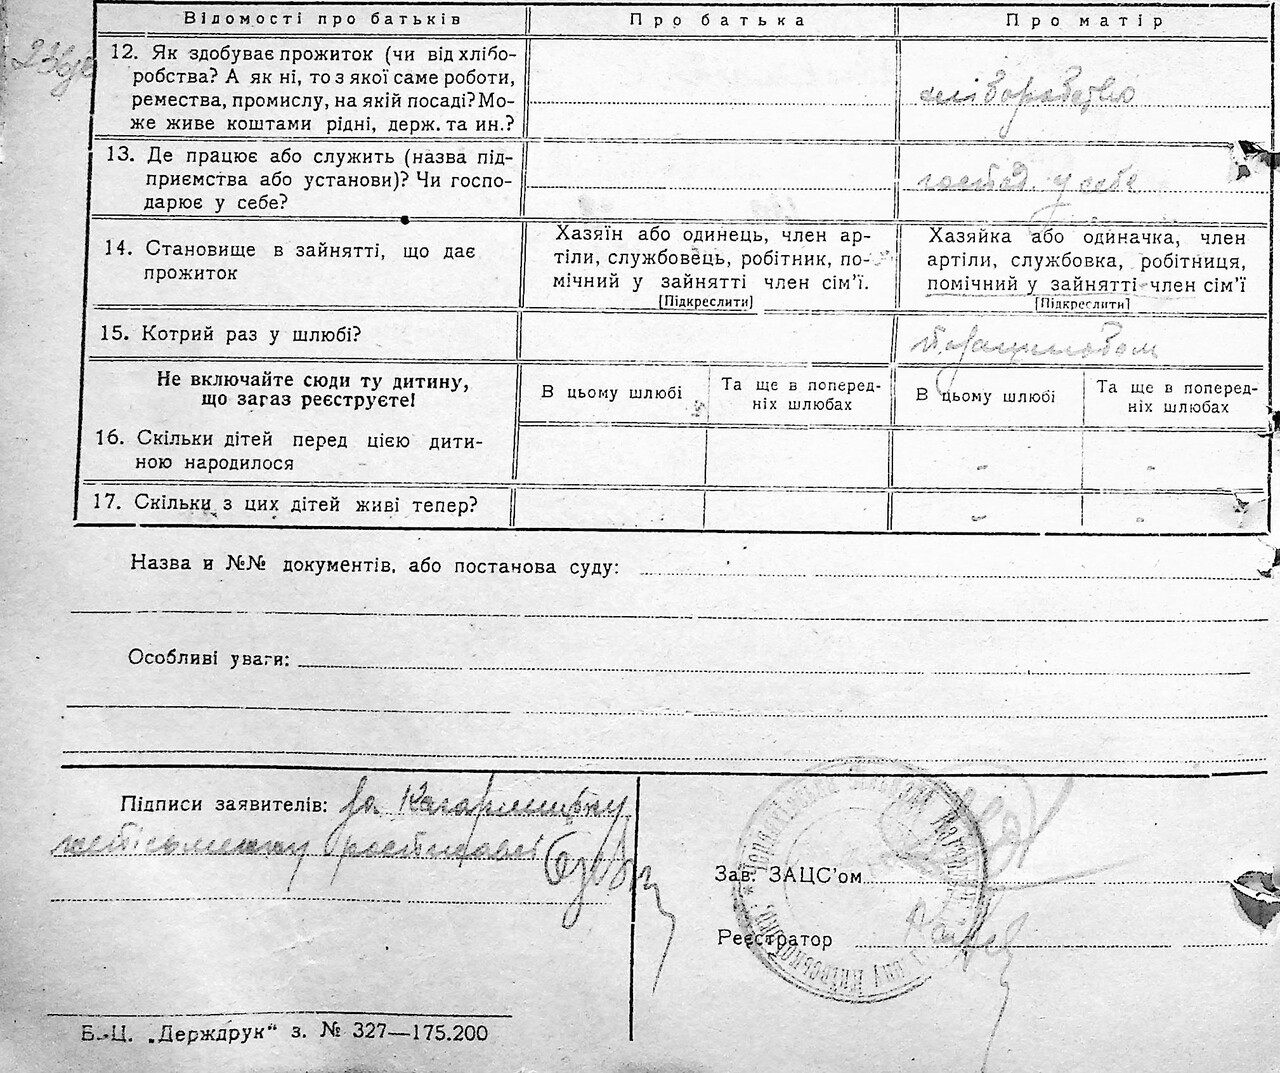 Відомості про батьків Про батька Про матір
12. Як здобуває прожиток (чи від хлібо-
робства? А як ні, то з якої саме роботи,
ремества, промислу, на якій посаді? Мо-
же живе коштами рідні, держ. та ин.?
хліборобство
13. Де працює або служить (назва під-
приємства або установи)? Чи госпо-
дарює у себе?
господ. у себе
14. Становище в зайнятті, що дає
прожиток
Хазяїн або одинець, член ар-
тіли, службовець, робітник, по-
мічний у зайнятті член сім’ї.
[Підкреслити]
Хазяйка або одиначка, член
артіли, службовка, робітниця,
помічний у зайнятті член сім’ї
[Підкреслити]
15. Котрий раз у шлюбі?
Не включайте сюди ту дитину,
що загаз реєструєте!
В цьому шлюбі
Та ще в поперед-
ніх шлюбах
В цьому шлюбі
Та ще в попереd-
ніх шлюбах
16. Скільки дітей перед цією дити-
ною народилося
- -
17. Скільки з цих дітей живі тепер?
- -
Назва и №№ документів, або постанова суду:
Особливі уваги:
Підписи заявителів: за
Зав. ЗАЦС’ом
Реєстратор
Б.-Ц. „Держдрук“ з. № 327—175.200